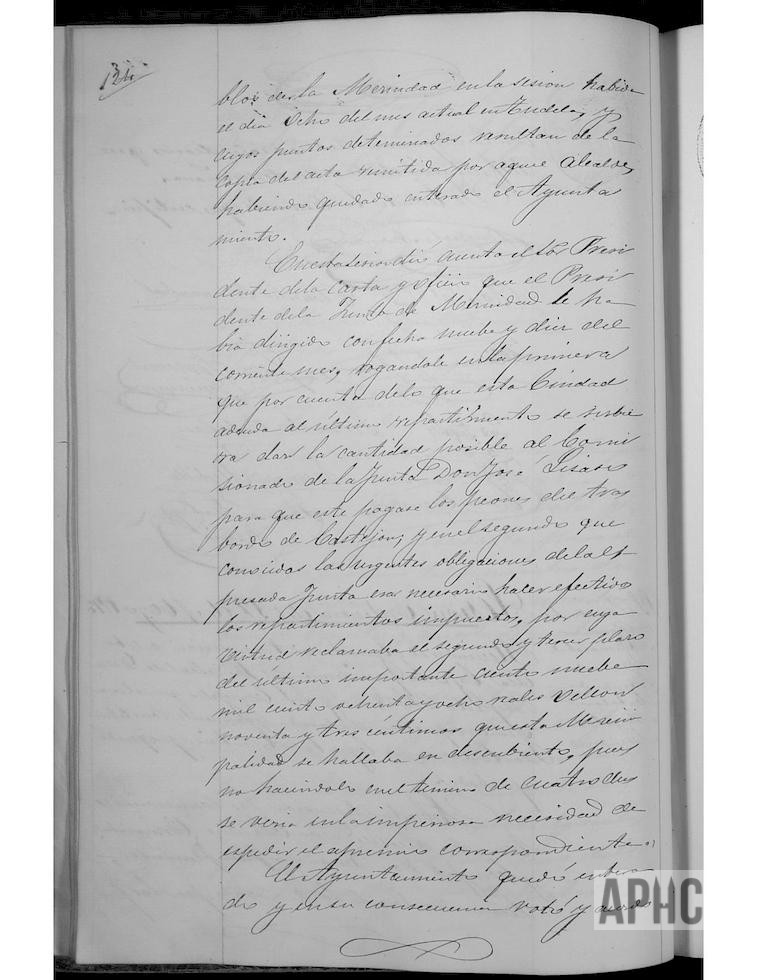 134
blos de la Merindad en la sesion habida
el dia Ocho del mes actual en Tudela, y
cuyos puntos determinados resultan de la
copia del acta remitida por aquel Alcalde,
habiendo quedado enterado el Ayunta
miento.
En esta sesion dió cuenta el Sor Presi
dente de la carta y oficio que el Presi
dente de la Junta de Merindad le ha
bia dirigido con fecha nuebe y diez del
corriente mes, rogandole en la primera
que por cuenta de lo que esta Ciudad
adeuda al último repartimiento se sirbie
ra dar la cantidad posible al Comi
sionado de la Junta Don José Lisaso
para que este pagase los peones del tras
bordo de Castejon; y en el segundo que
conocidas las urgentes obligaciones de la es
presada Junta era necesario hacer efectivos
los repartimientos impuestos, por cuya
virtud reclamaba el segundo y tercer plazo
del último importante ciento nuebe
mil ciento ochenta y ocho reales vellon
noventa y tres céntimos que esta Munici
palidad se hallaba en descubierto, pues
no haciendolo en el termino de cuatro dias
se veria en la imperiosa necesidad de
espedir el apremio correspondiente.
El Ayuntamiento quedó entera
do y en su consecuencia votó y acordó
APHC